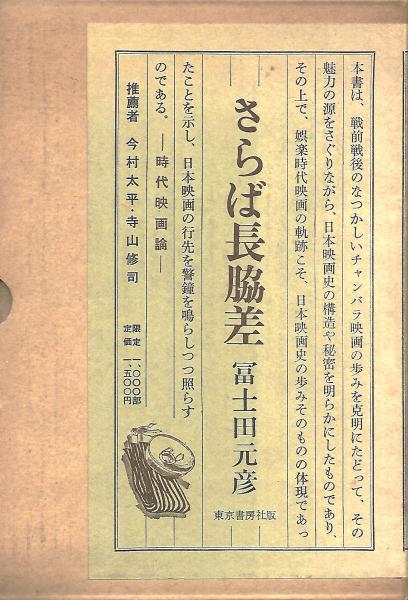 本書は、戦前戦後のなつかしいチャンバラ映画の歩みを克明にたどって、その
魅力の源をさぐりながら、日本映画史の構造や秘密を明らかにしたものであり、
その上で、娯楽時代映画の軌跡こそ、日本映画史の歩みそのものの体現であっ
さらば長脇差 冨士田元彦
東京書房社版
たことを示し、日本映画の行先を警鐘を鳴らしつつ照らす
のである。―時代映画論―
推薦者 今村太平・寺山修司
限定 一、〇〇〇部
定価 一、五〇〇円